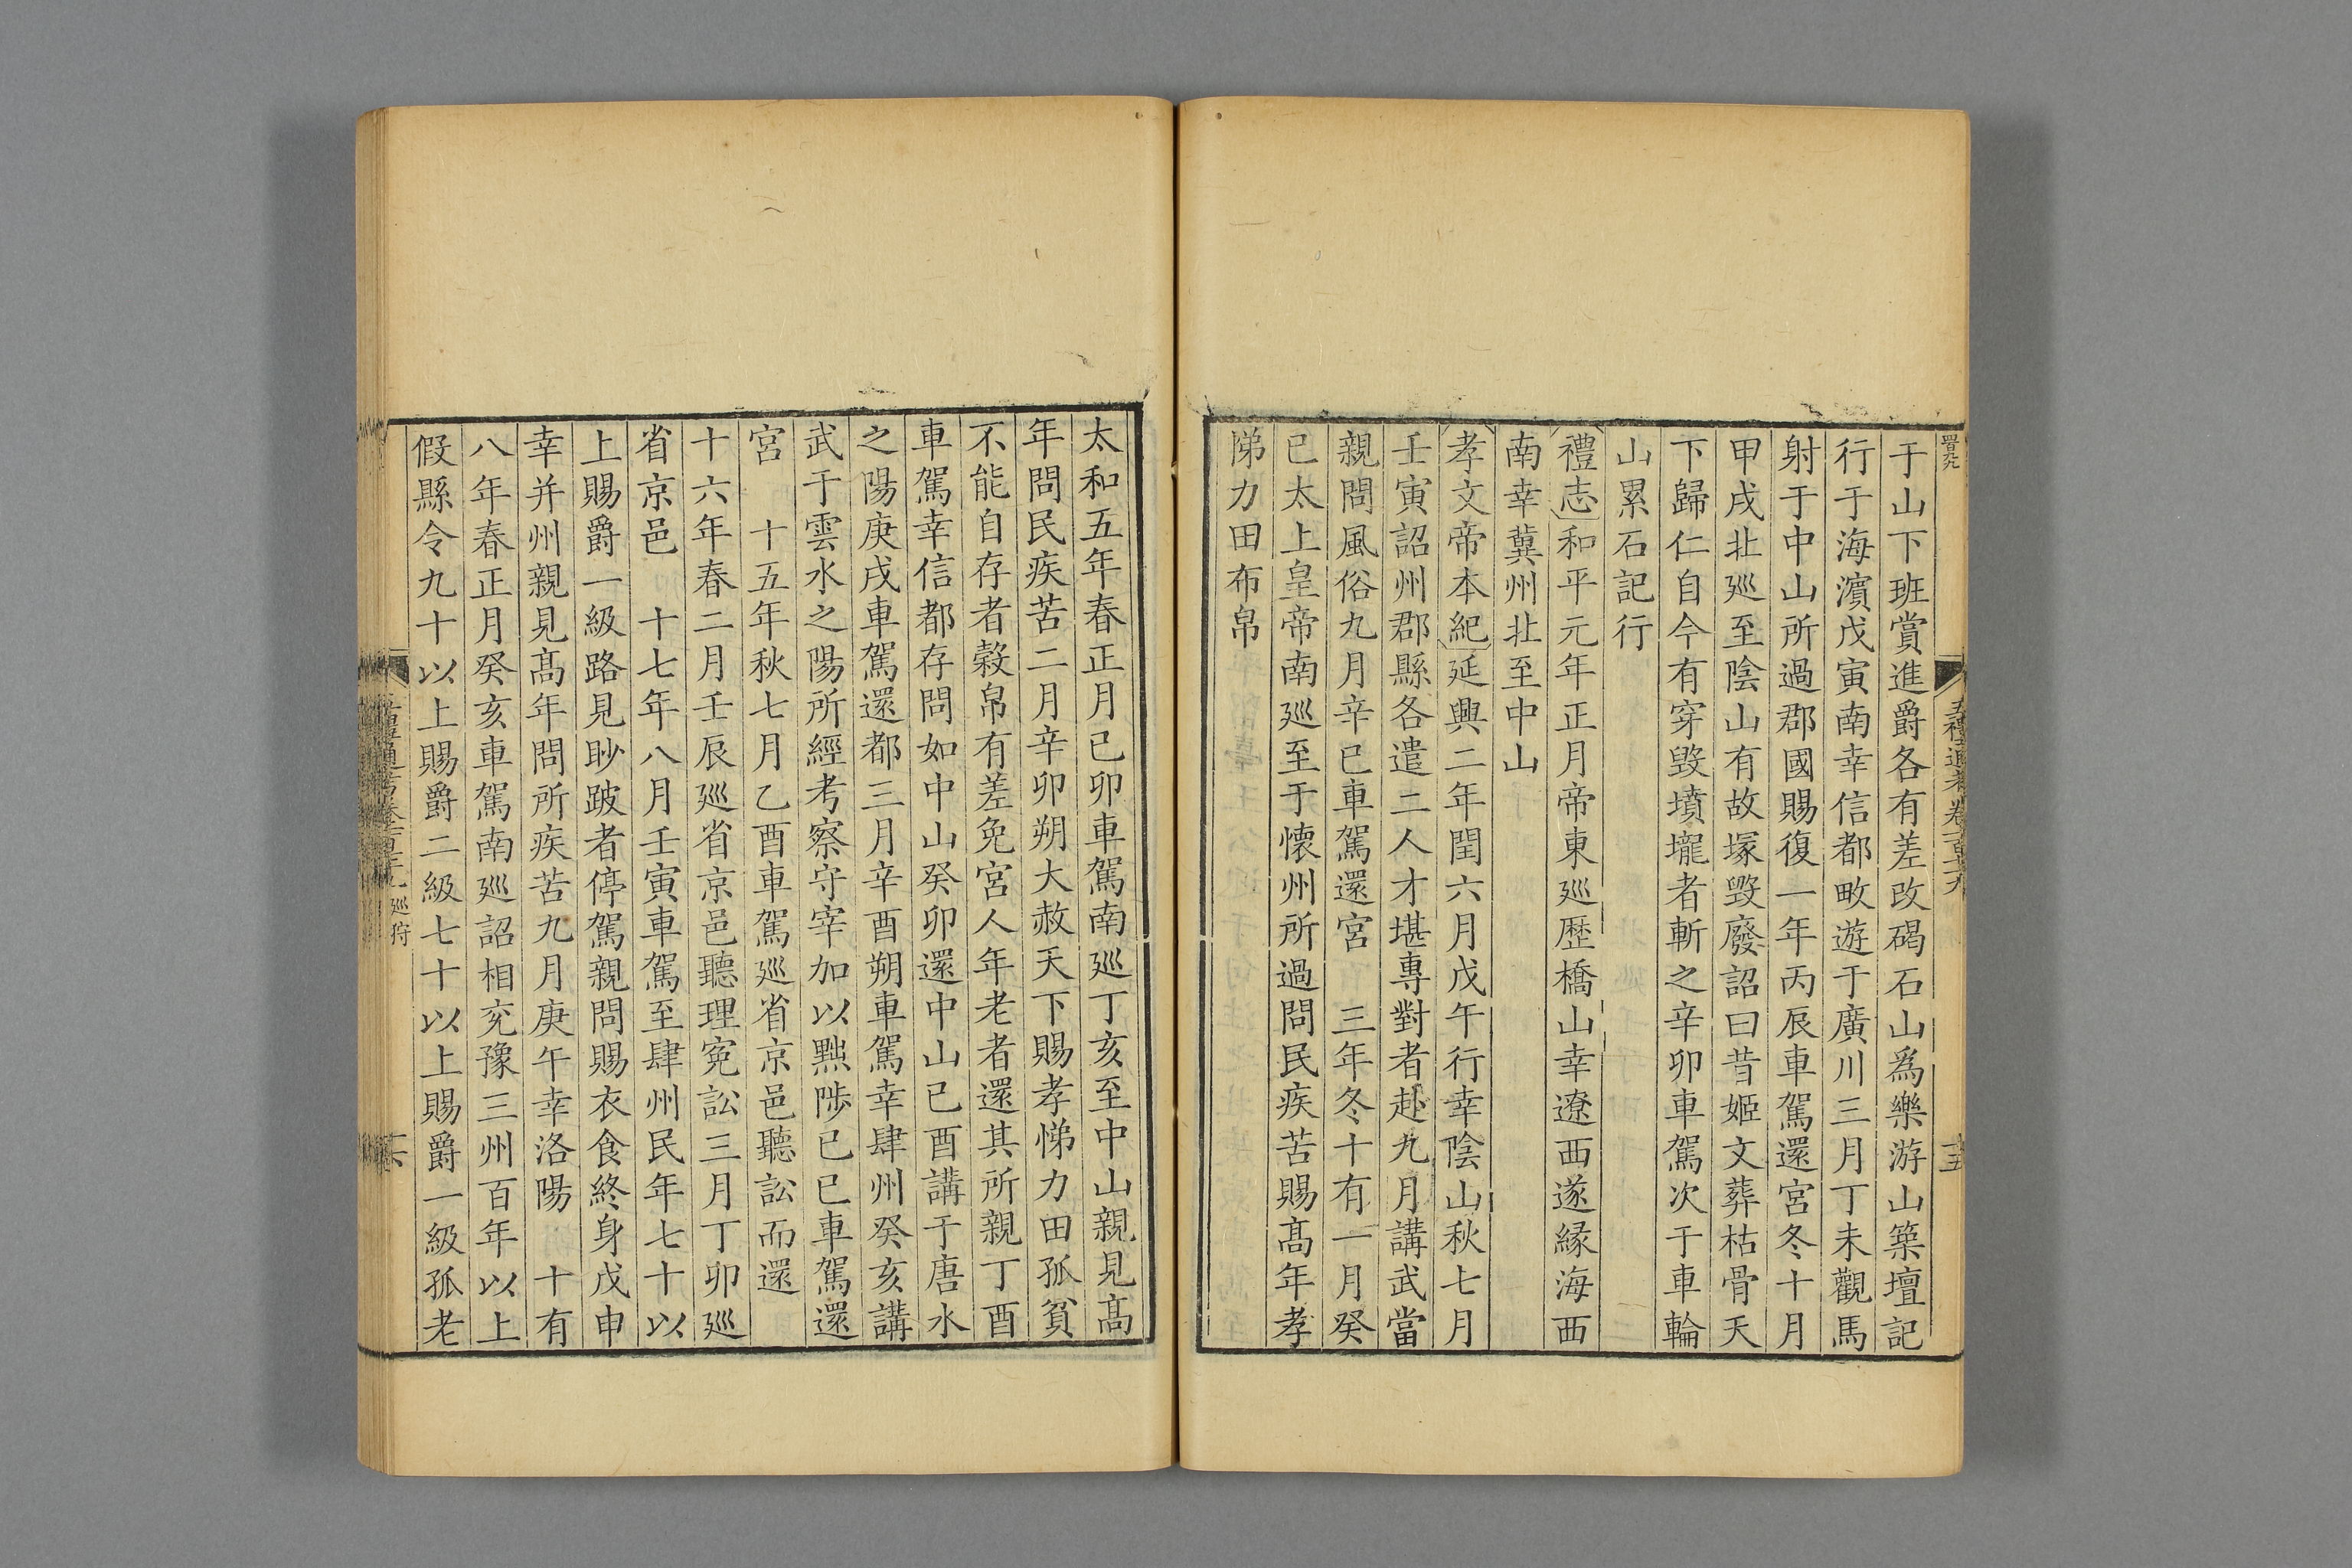 于山下班賞進爵各有差改碣石山爲樂游山築壇記
行于海濵戊寅南幸信都畋遊于廣川三月丁未觀馬
射于中山所過郡國賜復一年丙辰車駕還宮冬十月
甲戌北廵至陰山有故塚毀廢詔曰昔姬文葬枯骨天
下歸仁自今有穿毀墳壠者斬之辛卯車駕次于車輪
山累石記行
禮志和平元年正月帝東廵歷橋山幸遼西遂緣海西
南幸冀州北至中山
孝文帝本紀延興二年閏六月戊午行幸陰山秋七月
壬寅詔州郡縣各遣二人才堪專對者赴九月講武當
親問風俗九月辛巳車駕還宮　三年冬十有一月癸
巳太上皇帝南廵至于懷州所過問民疾苦賜髙年孝
悌力田布帛
五禮通考卷一百七十九
十五
太和五年春正月己卯車駕南廵丁亥至中山親見髙
年問民疾苦二月辛卯朔大赦天下賜孝悌力田孤貧
不能自存者榖帛有差免宮人年老者還其所親丁酉
車駕幸信都存問如中山癸卯還中山己酉講于唐水
之陽庚戌車駕還都三月辛酉朔車駕幸肆州癸亥講
武于雲水之陽所經考察守宰加以黜陟己巳車駕還
宮　十五年秋七月乙酉車駕廵省京邑聽訟而還
十六年春二月壬辰廵省京邑聽理冤訟三月丁卯廵
省京邑　十七年八月壬寅車駕至肆州民年七十以
上賜爵一級路見眇跛者停駕親問賜衣食終身戊申
幸并州親見髙年問所疾苦九月庚午幸洛陽　十有
八年春正月癸亥車駕南廵詔相兖豫三州百年以上
假縣令九十以上賜爵二級七十以上賜爵一級孤老
廵狩